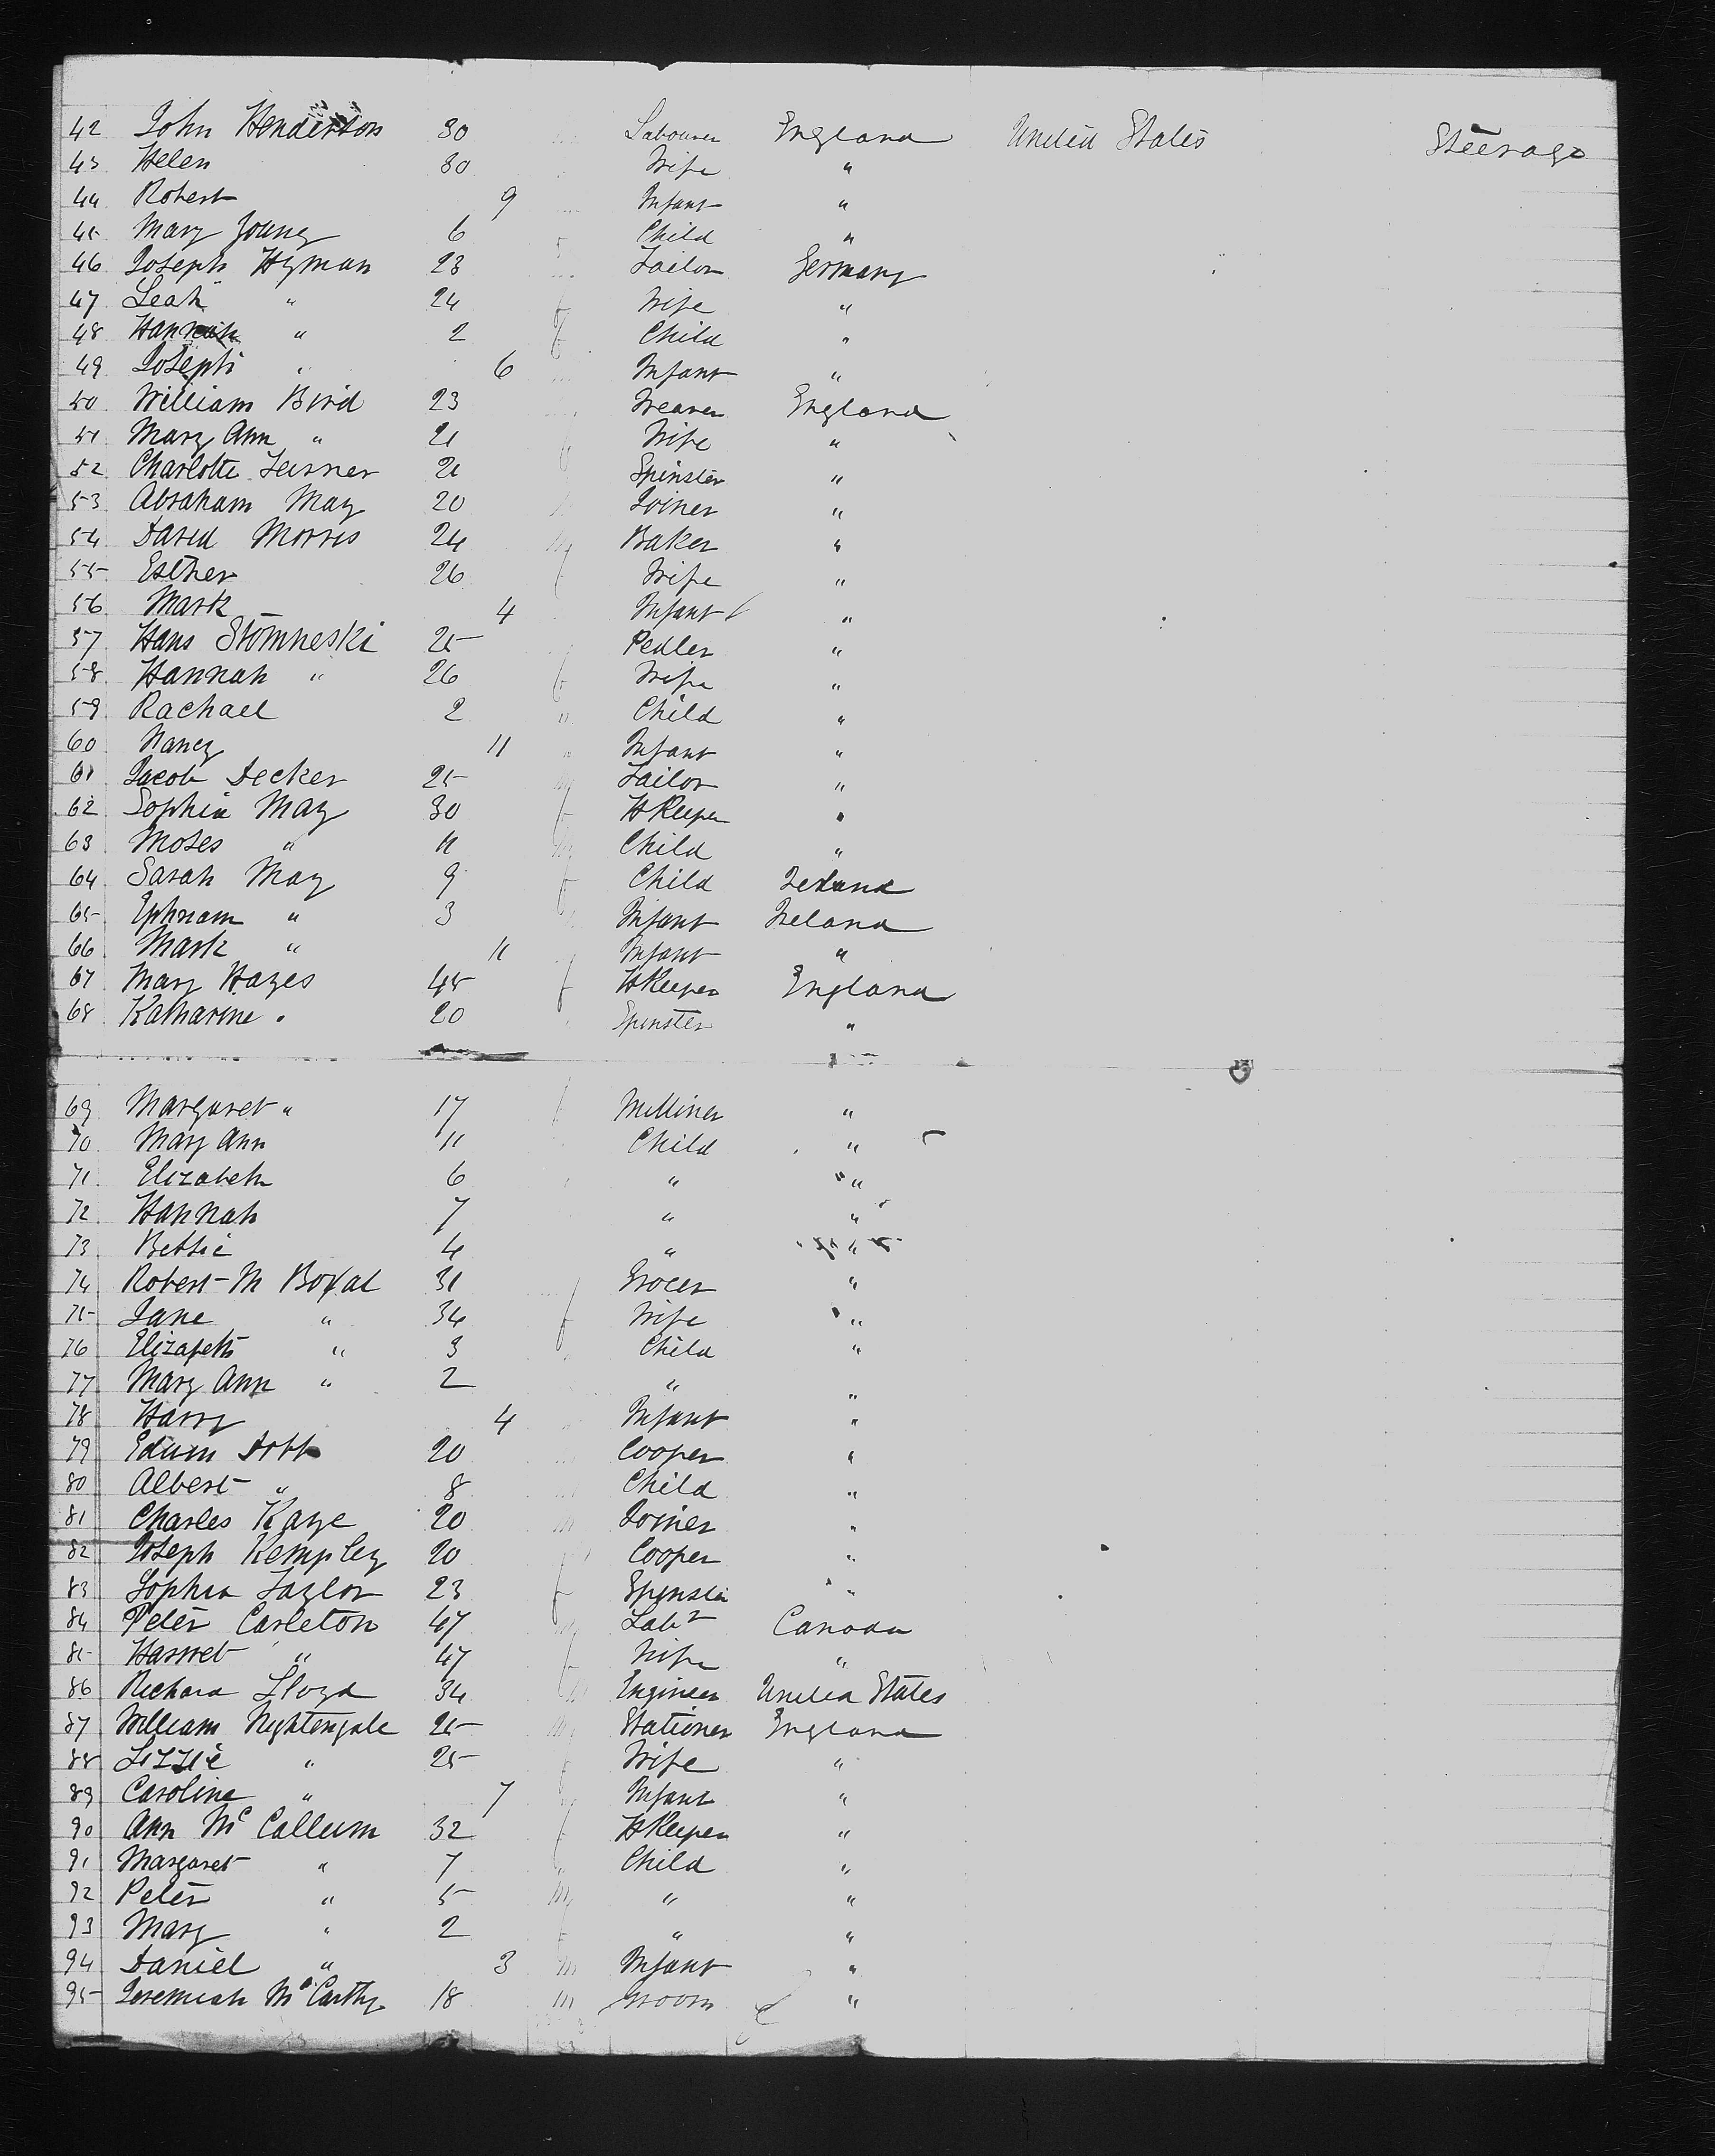 42 John Henderson 30 Labourer England United States Steerage
43 Helen 30 Wife "
44 Robert 9 Infant "
45 Mary Young 6 Child "
46 Joseph Hyman 23 Tailor Germany
47 Leah " 24 f Wife "
48 Hannah " 2 f Child "
49 Joseph " 6 Infant "
50 William Bird 23 Weaver England
51 Mary Ann " 21 f Wife "
52 Charlotte 21 Spinster "
53 Abraham May 20 Joiner "
54 David Morris 24 m Baker "
55 Esther 26 f Wife "
56 Mark 4 Infant "
57 Hans Stomneski 25 Pedler "
58 Hannah " 26 f Wife "
59 Rachael 2 " Child "
60 Nancy 11 " Infant "
61 Jacob Decker 25 m Tailor "
62 Sophia May 30 f HKeeper "
63 Moses " 11 m Child "
64 Sarah May 9 f Child Ireland
65 Ephriam " 3 Infant Ireland
66 Mark " 11 Infant "
67 Mary Hayes 45 f HKeeper England
68 Katharine " 20 Spinster "
69 Margaret " 17 f Milliner "
70 Mary Ann 11 Child "
71 Elizabeth 6 " "
72 Hannah 7 " "
73 Bettie 4 " "
74 Robert M 31 Grocer "
75 Jane " 34 f Wife "
76 Elizabeth " 3 Child "
77 Mary Ann " 2 " "
78 Harry 4 Infant "
79 Edwin 20 Cooper "
80 Albert " 8 Child "
81 Charles Kaye 20 m Joiner "
82 Joseph Kempley 20 m Cooper "
83 Sophia Taylor 23 f Spinster "
84 Peter Carleton 47 m Labr Canada
85 Harriet " 47 f Wife "
86 Richard Lloyd 34 m Engineer United States
87 William Nightengale 25 m Stationer England
88 Lizzie " 25 f Wife "
89 Caroline " 7 Infant "
90 Ann McCallum 32 f HKeeper "
91 Margaret " 7 " Child "
92 Peter " 5 m " "
93 Mary " 2 f " "
94 Daniel " 3 m Infant "
95 Jeremiah McCarthy 18 m Groom "